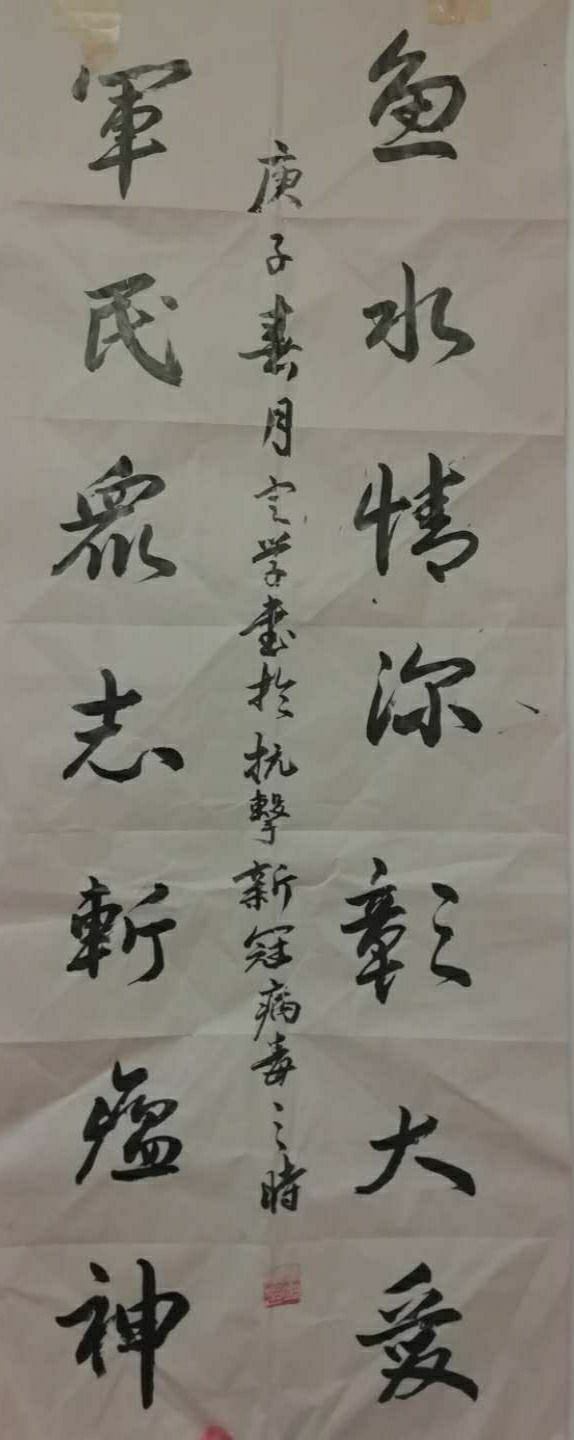 魚水情深彰大愛
軍民眾志斬瘟神
庚子春月定学書於抗擊新冠病毒之時